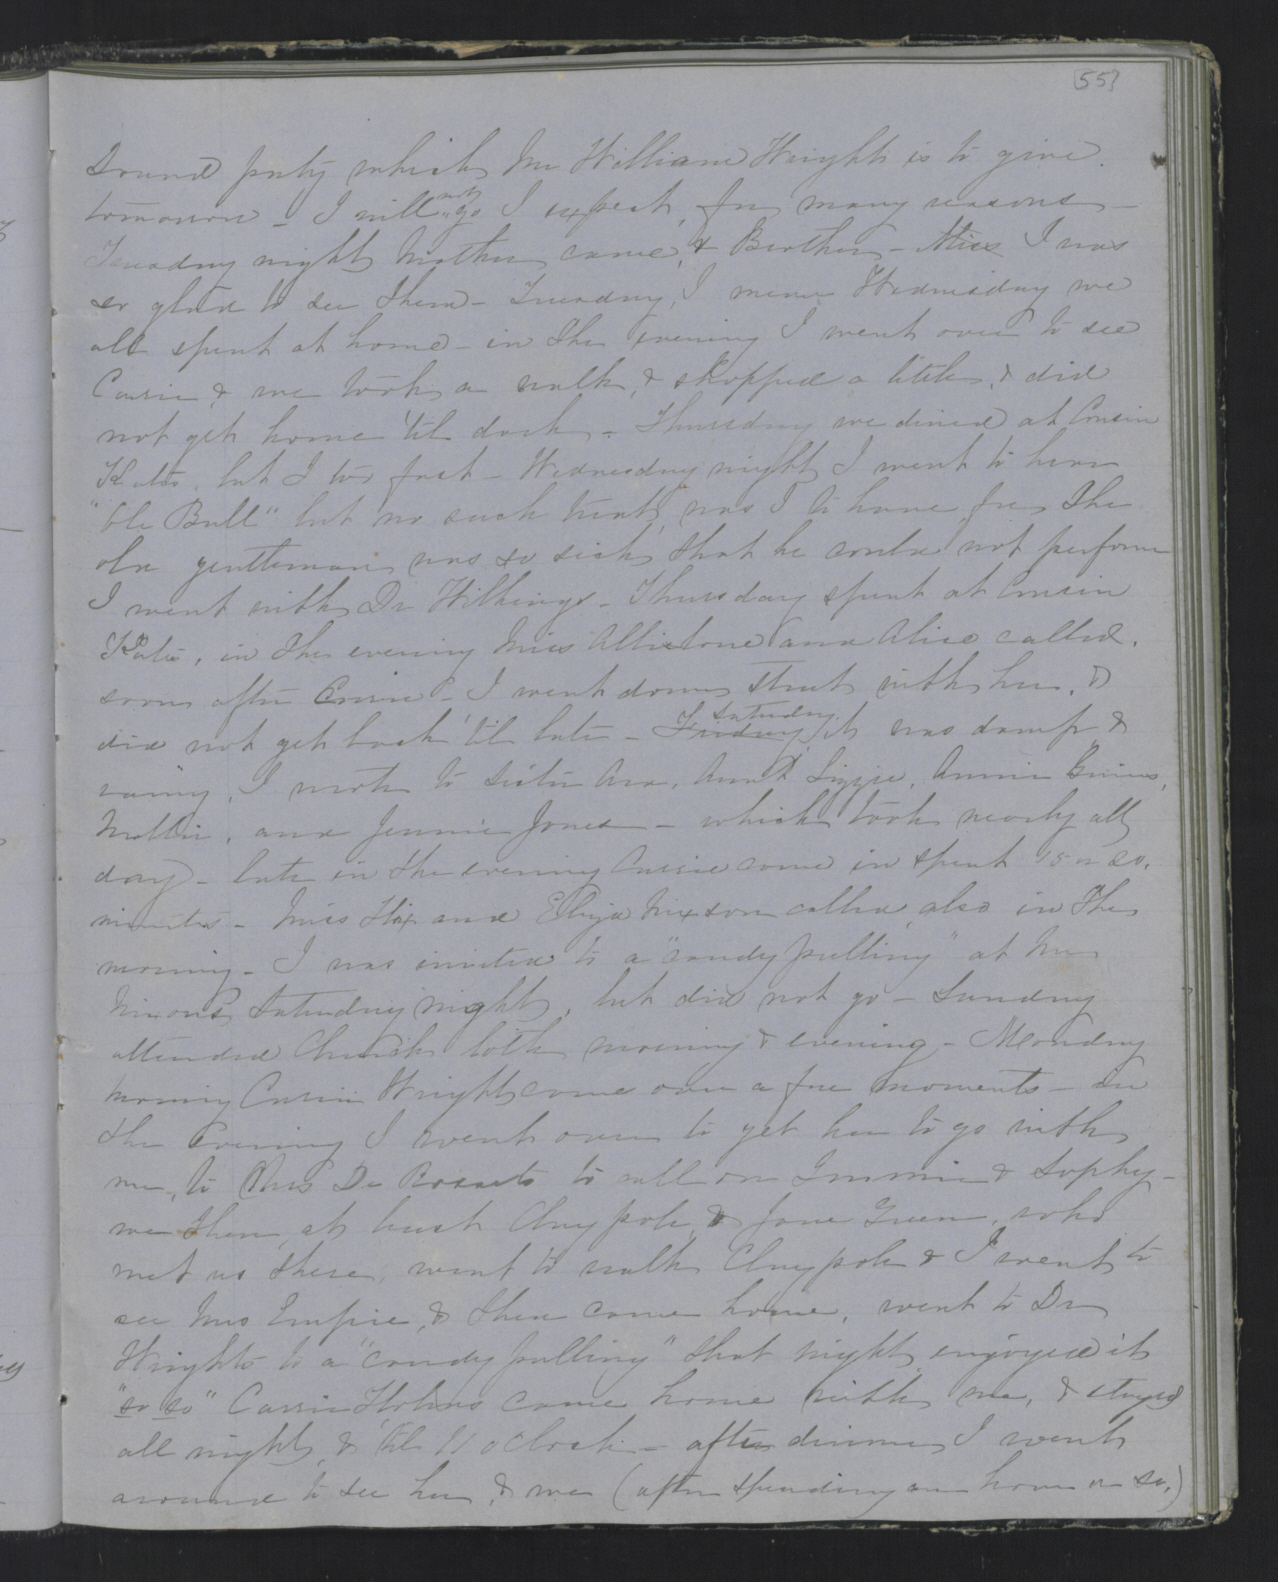 55
Sound party which Mr William Wright is to give.
tomorrow - I will not go I expect, for many reasons -
Tuesday night Mother came, & Brother - Miss I was
so glad to see them - Tuesday, I mean Wednesday we
all spent at home - in the evening I went over to see
Cassie, & we took a walk, & shopped a little, & did
not get home 'til dark - Thursday we dined at Cousin
Kate's, but I too fast - Wednesday night I went to hear
"Ole Bull" but no such treat, was I to have, for the
old gentleman was so sick, that he could not perform
I went with Dr Wilkings - Thursday spent at Cousin
Kate's, in the evening Miss Allistone and Alice called.
soon after Cassie - I went down street with her, &
did not get back 'til late - Friday Saturday it was damp &
rainy, I wrote to Sister Ann, Aunt Lizzie, Annie
Mollie, and Jennie Jones - which took nearly all
day - late in the evening Cassie came in spent 15 or 20.
minutes - Miss Hix and Eliza Nixson called also in the
morning - I was invited to a "candy pulling" at Mrs
Nixons Saturday night, but did not go - Sunday
attended Church both morning & evening - Monday
morning Cassie Wright came over a few moments - in
the evening I went over to get her to go with
me, to Mrs De Rossets to call on Immie & Sophy -
we then, at least Claypole & Jane Green, who
met us there, went to walk Claypole & I went to
see Mrs Empie, & then came home, went to Dr
Wrights to a "candy pulling" that night, enjoyed it
"so so" Cassie Holmes came home with me, & stayed
all night, & 'til 11 oclock - after dinner I went
around to see her, & we (after spending an hour or so,)